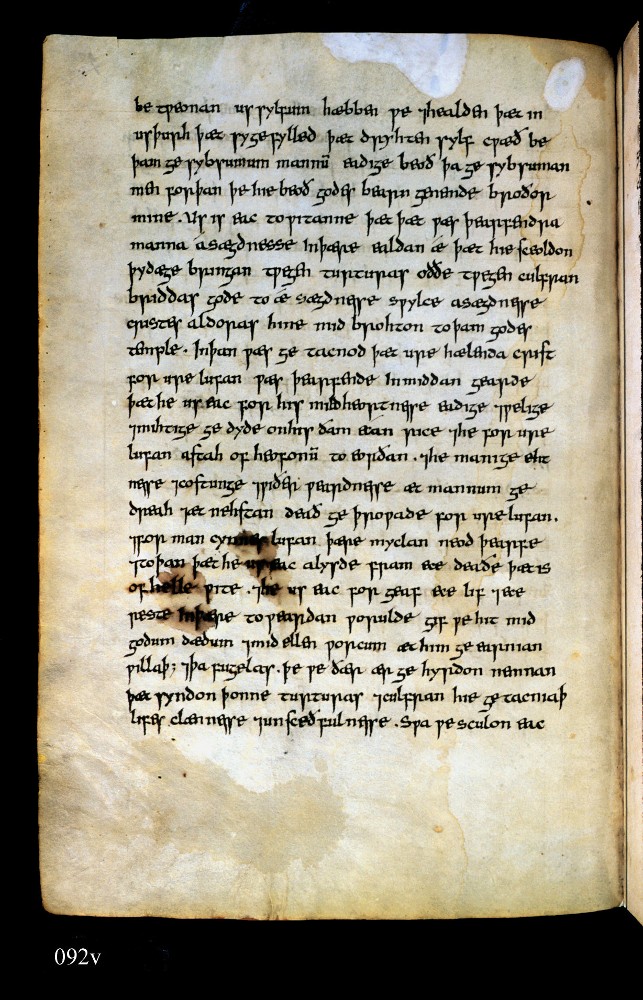 be tƿeonan us sylfum hæbben ƿe ⁊healden þæt in
us þurh þæt sy gefylled þæt dryhten sylf cƿæð be
þam gesybsumum mannū eadige beoð þa gesybsuman
men forþan þe hie beoð godes bearn genende broðor
mine. Us is eac to ƿitanne þæt þæt ƿæs þearfendra
manna asægdnesse In þære ealdan ǽ þæt hie sceoldon
þy dæge bringan tƿegen turturas oððe tƿegen culfran
briddas gode to ǽ sægdnesse sƿylce asægdnesse
cristes aldoras hine mid brohton to þam godes
temple. In þan ƿæs ge tacnod þæt ure hælenda crist
for ure lufan ƿæs þearfende In middan gearde
þæt he us eac for his mildheortnesse eadige ⁊ƿelige
⁊mihtige ge dyde on his ðam ecan rice ⁊he for ure
lufan astah of heofonū to eorðan. ⁊he manige eht
nesse ⁊costunge ⁊ƿiðer ƿeardnesse æt mannum ge
dreah ⁊æt nehstan deað ge þroƿade for ure lufan.
⁊for man cynnes lufan þære myclan neod þearfe
⁊to þan þæt he us eac alysde fram ece deaðe þæt is
of helle ƿite. ⁊he us eac for geaf ece lif ⁊ece
reste In þære toƿeardan ƿorulde gif ƿe hit mid
godum dædum ⁊mid ellen ƿorcum æt him ge earnian
ƿillaþ; ⁊þa fugelas. þe ƿe ðær ær ge hyrdon nemnan
þæt syndon þonne turturas ⁊culfran hie ge tacniaþ
lifes clænnesse ⁊unsceðfulnesse. Sƿa ƿe sculon eac
092v